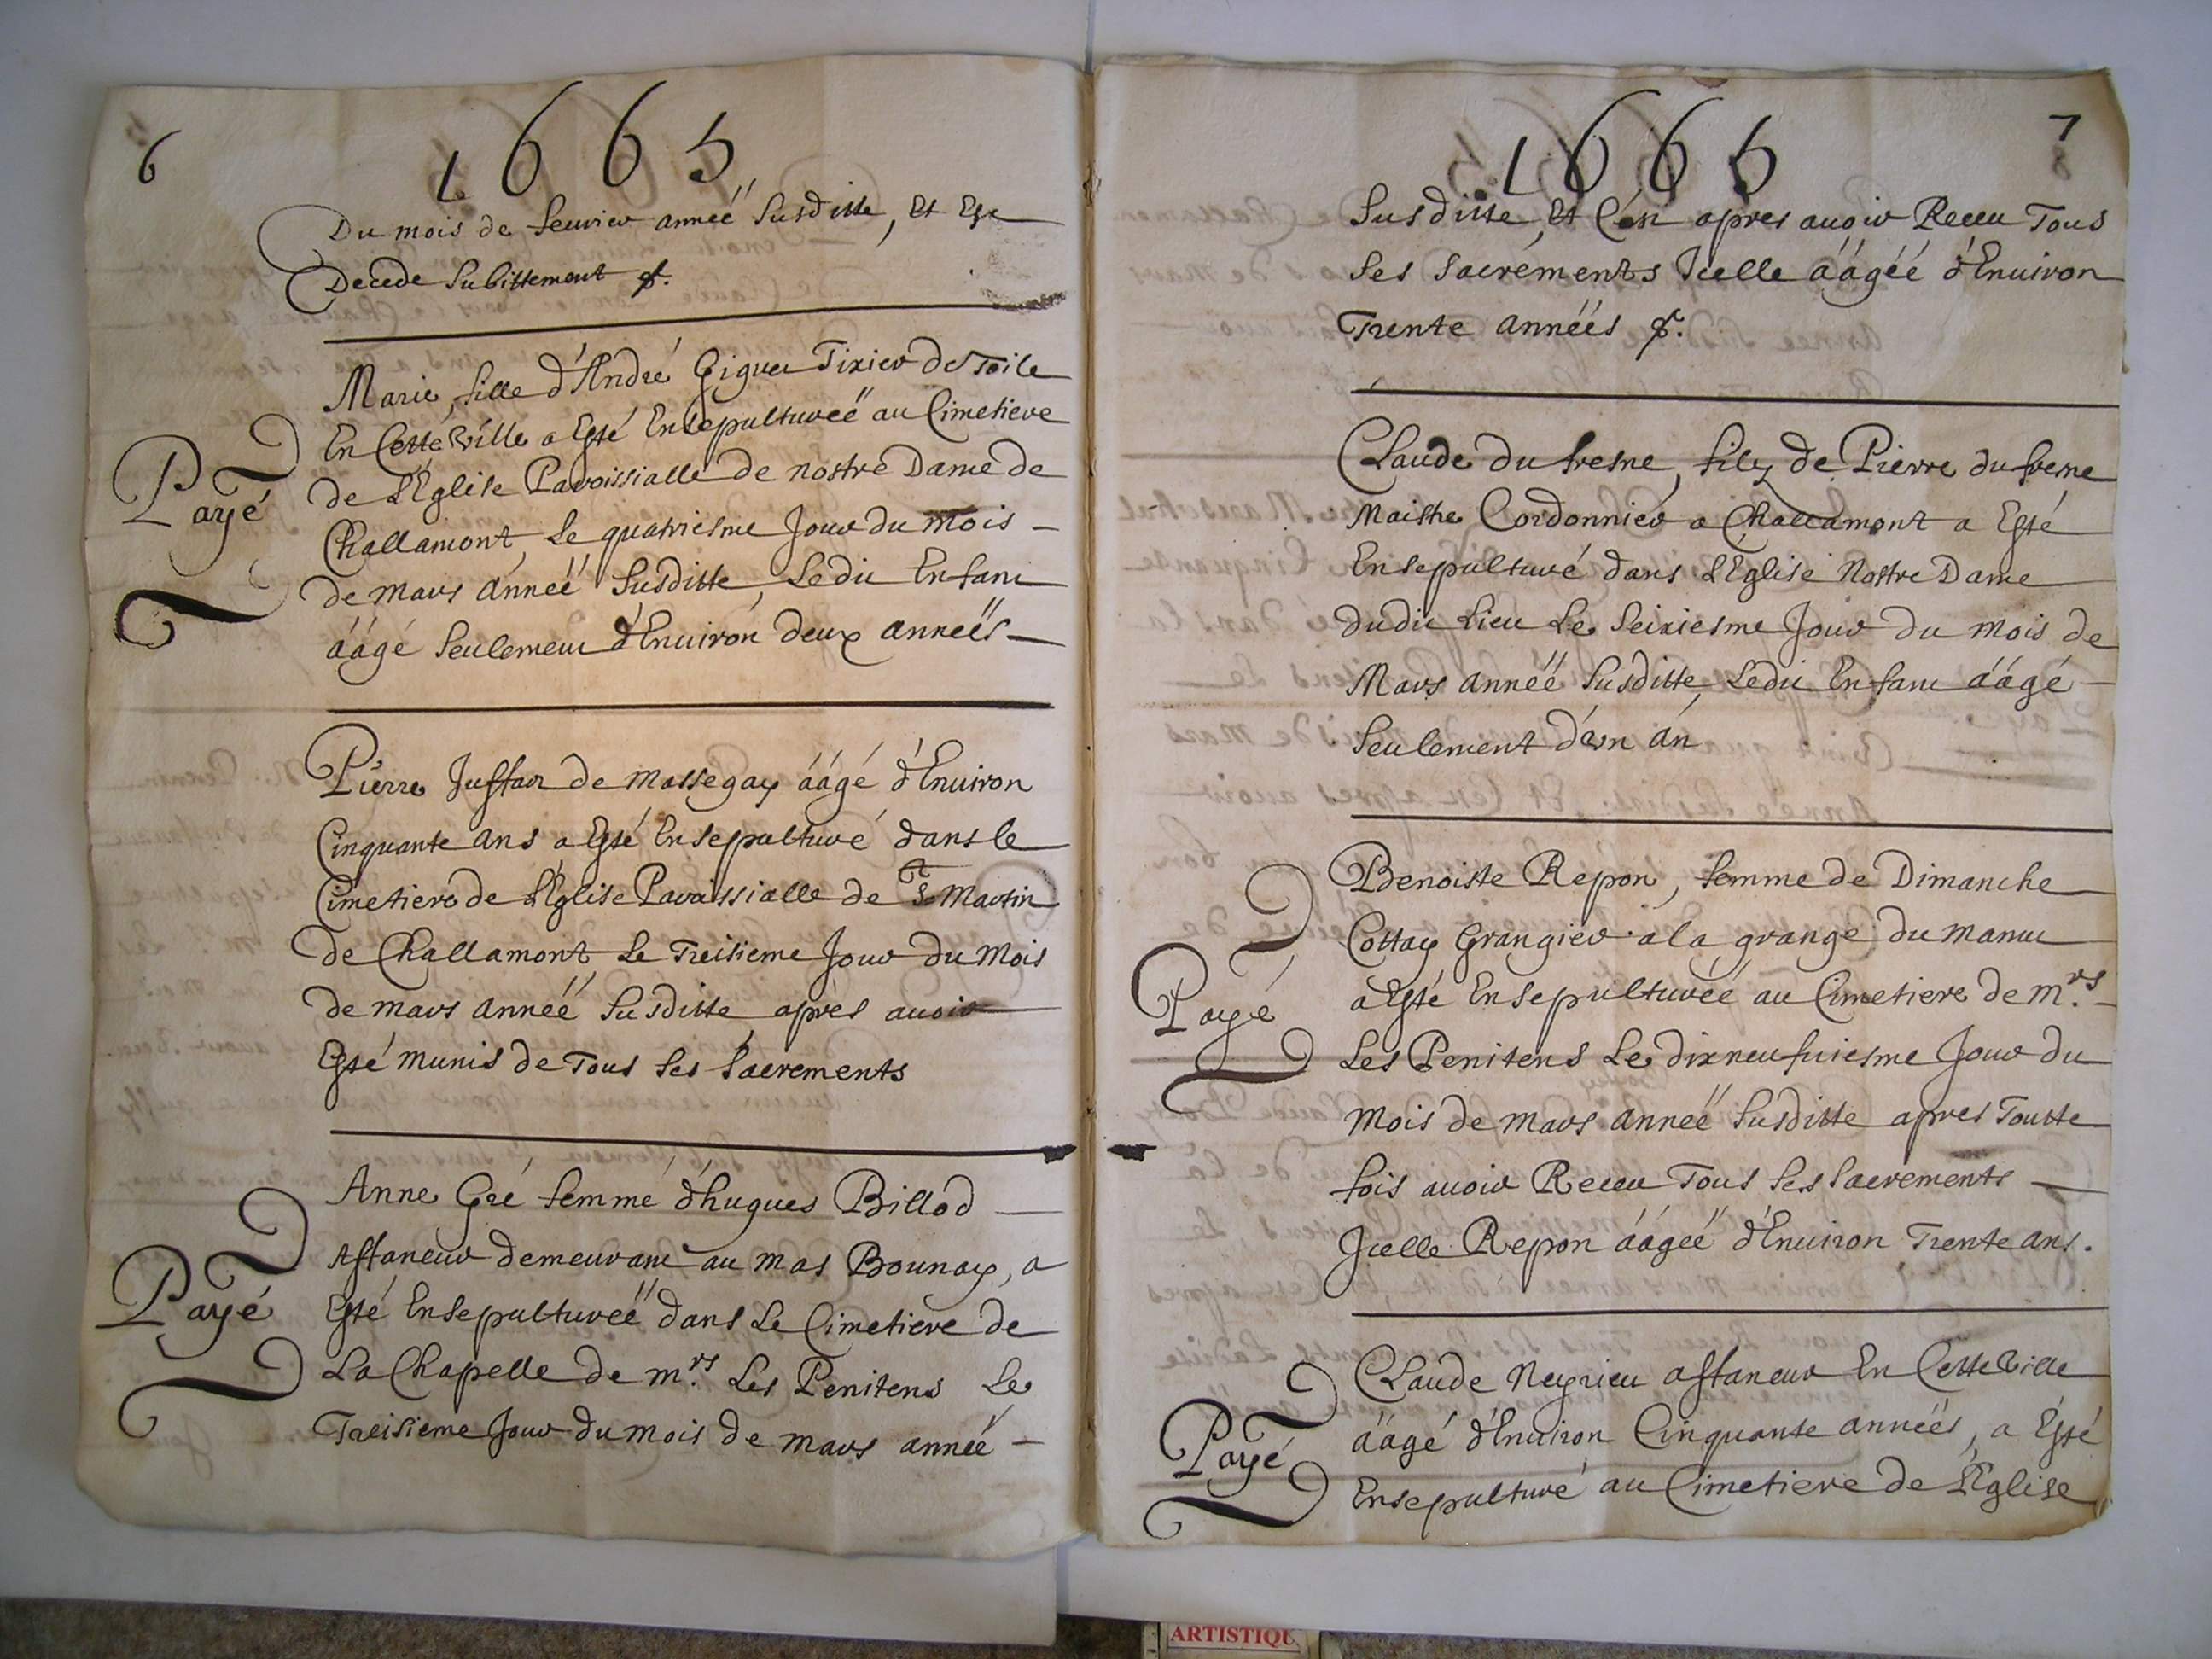 6
1665
Du mois de feuvier anneë susditte, Et Est
Decede subittement &.
Marie, fille d'André Giguet Tixier de Toile
En Cette Ville a Esté Ensepultureë au Cimetiere
Payé
de L'Eglise Paroissialle de nostre Dame de
Challamont, Le quatriesme Jour du mois
de mars anneë susditte, Ledit Enfant
áágé seulement d'Enuiron deux anneës
Pierre Juffan de Massegay áágé d'Enuiron
Cinquante ans a Esté Ensepulturé dans le
Cimetiere de L'Eglise Paroissialle de St Martin
de Challamont Le Treisieme Jour du Mois
de mars anneë susditte, apres auoir
Esté munis de Tous ses sacrements
Anne Gré femme d'hugues Billod
Payé
Affaneur demeurant au mas Bounay, a
Esté Ensepultureë dans Le Cimetiere de
La Chapelle de mrs. Les Penitens Le
Treisieme Jour du mois de mars anneë
7
1665
susditte, Et C'est apres auoir Receu Tous
ses sacréments Icelle áágéé d'Enuiron
Trente annéës &.
Claude du fresne, filz de Pierre du fresne
Maistre Cordonnier a Challamont a Esté
Ensepulturé dans L'Eglise Nostre Dame
dudit Lieu Le seixiesme Jour du mois de
Mars annéë susditte, Ledit Enfant áágé
seulement d'un án
Benoiste Repon, femme de Dimanche
Cottay Grangier a la grange du mamu
Payé
a Esté Ensepulturéë au Cimetiere de mrs.
Les Penitens Le dixneufuiesme Jour du
mois de mars anneë susditte apres Toutte
fois auoir Receu Tous ses sacrements
Icelle Repon áágeë d'Enuiron Trente ans.
Claude Neyrieu affaneur En Cette Ville
Payé
áágé d'Enuiron Cinquante annéës, a Esté
Ensepulturé au Cimetiere de L'Eglise
ARTISTIQU